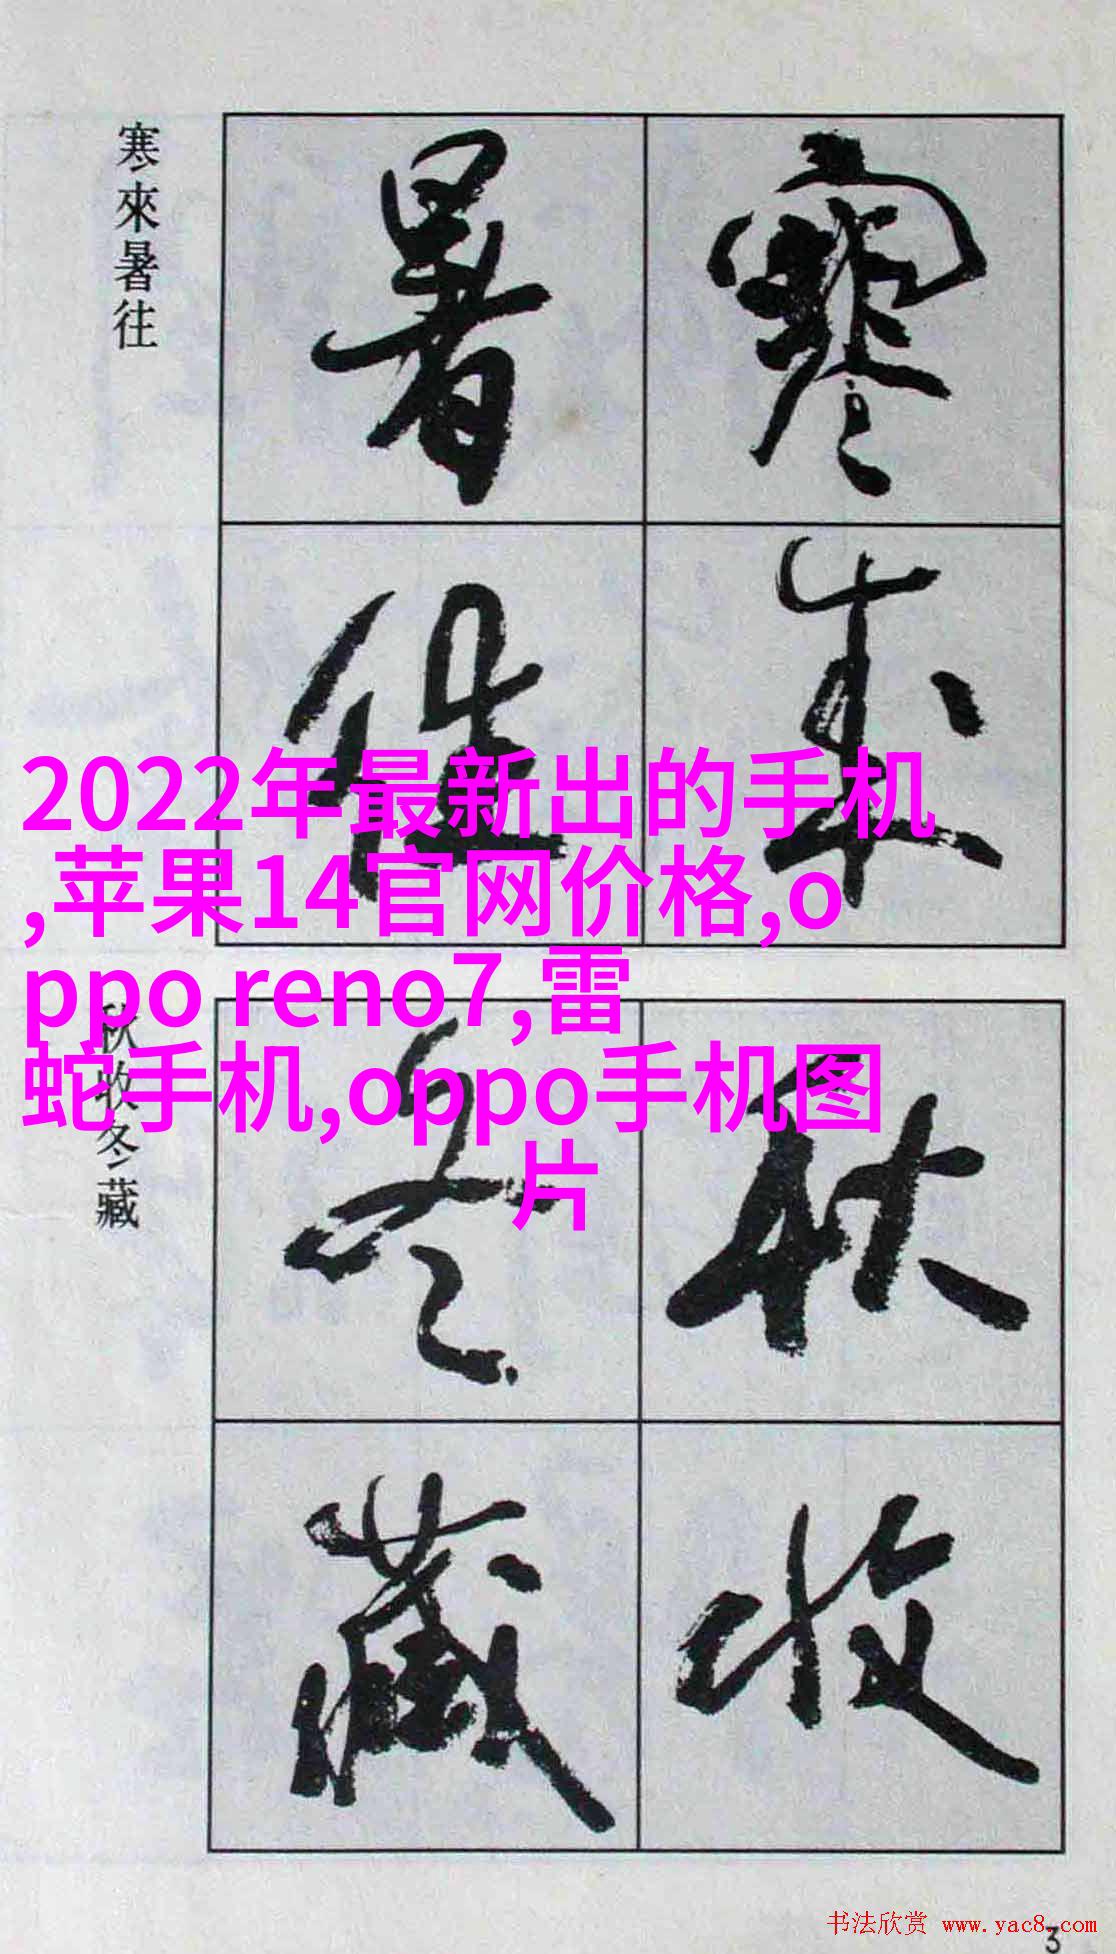 寒來暑往
寒來
暑往
2022年最新出的手机
,苹果14官网价格,o
ppo reno7,雷
蛇手机,oppo手机图
片
秋收冬藏
秋收
冬藏
书法欣赏 www.yac8.com
3